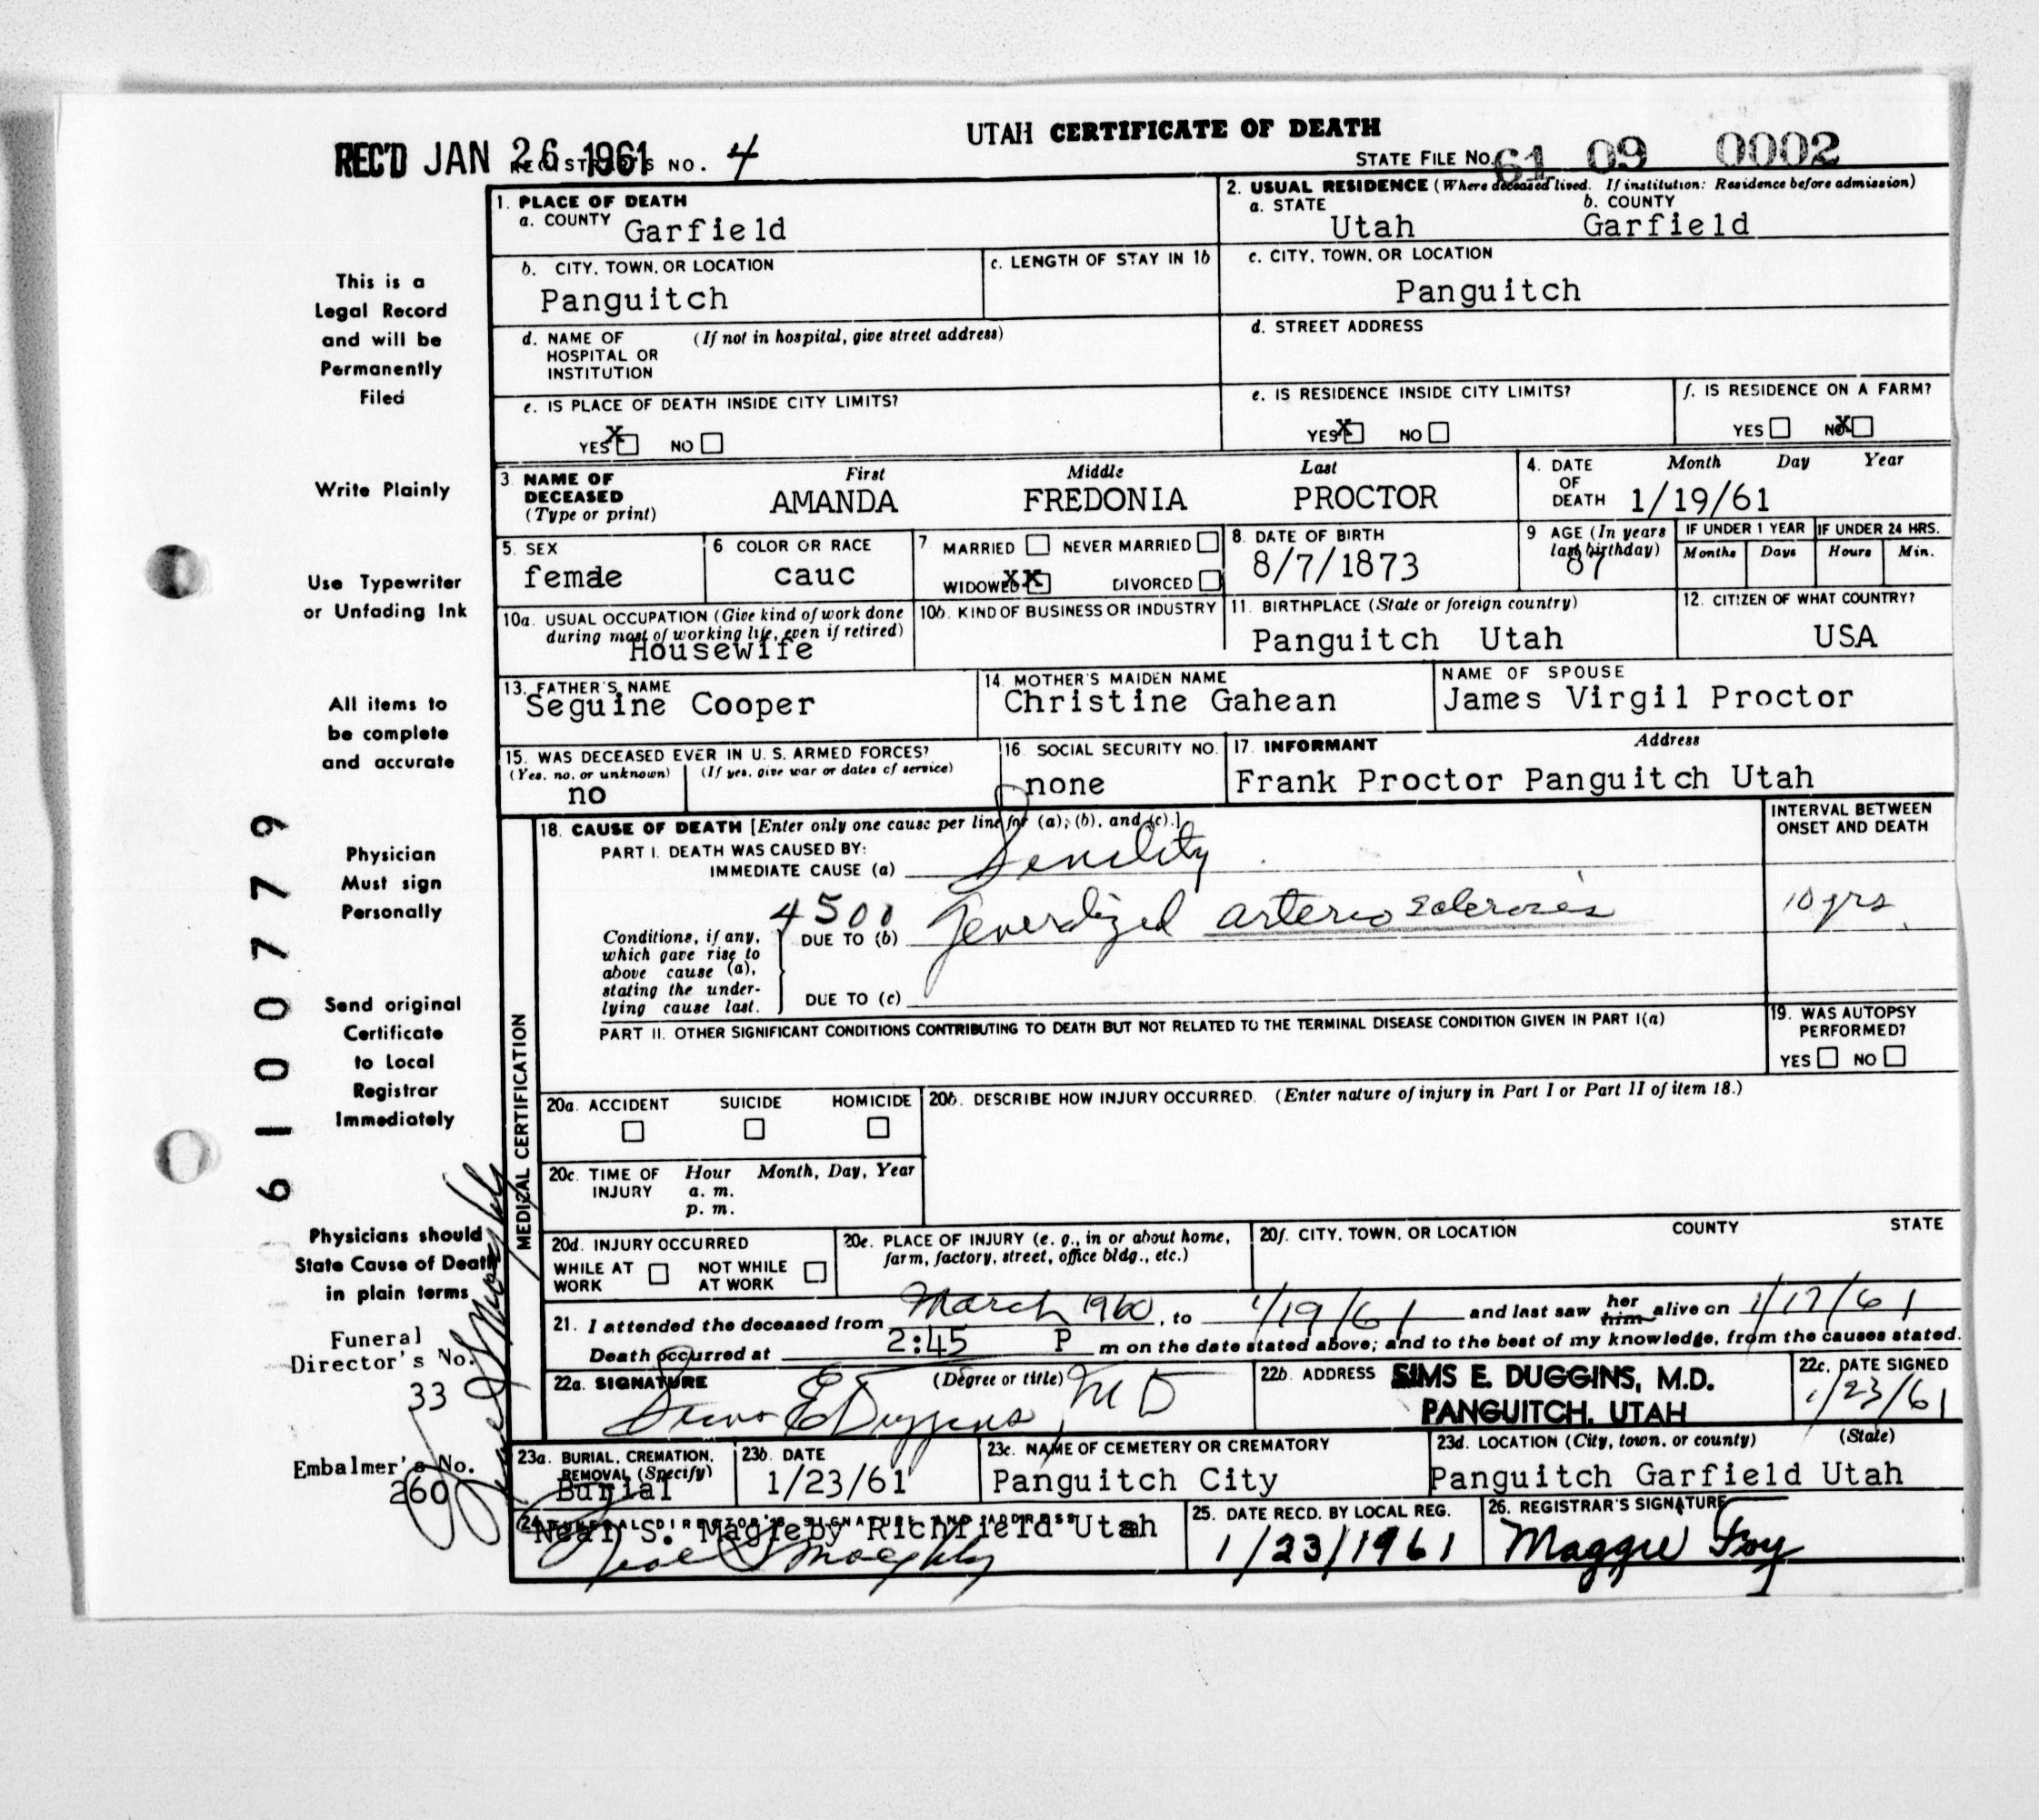 UTAH CERTIFICATE OF DEATH
REC'D JAN 26 1961 REGISTRAR'S NO. 4
STATE FILE NO. 61 09 0002
1. PLACE OF DEATH
a. COUNTY Garfield
2. USUAL RESIDENCE (Where deceased lived. If institution: Residence before admission)
a. STATE Utah b. COUNTY Garfield
b. CITY, TOWN, OR LOCATION Panguitch
c. LENGTH OF STAY IN 1b
c. CITY, TOWN, OR LOCATION Panguitch
d. NAME OF HOSPITAL OR INSTITUTION (If not in hospital, give street address)
d. STREET ADDRESS
e. IS PLACE OF DEATH INSIDE CITY LIMITS?
YES X NO
e. IS RESIDENCE INSIDE CITY LIMITS?
YES X NO
f. IS RESIDENCE ON A FARM?
YES NO X
3. NAME OF DECEASED (Type or print)
First Middle Last
AMANDA FREDONIA PROCTOR
4. DATE OF DEATH Month Day Year
1/19/61
5. SEX
femae
6 COLOR OR RACE
cauc
7. MARRIED NEVER MARRIED
WIDOWED XX DIVORCED
8. DATE OF BIRTH
8/7/1873
9 AGE (In years last birthday)
87
IF UNDER 1 YEAR IF UNDER 24 HRS.
Months Days Hours Min.
10a. USUAL OCCUPATION (Give kind of work done during most of working life, even if retired)
Housewife
10b. KIND OF BUSINESS OR INDUSTRY
11. BIRTHPLACE (State or foreign country)
Panguitch Utah
12. CITIZEN OF WHAT COUNTRY?
USA
13. FATHER'S NAME
Seguine Cooper
14. MOTHER'S MAIDEN NAME
Christine Gahean
NAME OF SPOUSE
James Virgil Proctor
15. WAS DECEASED EVER IN U. S. ARMED FORCES?
(Yes, no, or unknown) (If yes, give war or dates of service)
no
16. SOCIAL SECURITY NO.
none
17. INFORMANT Address
Frank Proctor Panguitch Utah
MEDICAL CERTIFICATION
18. CAUSE OF DEATH [Enter only one cause per line for (a), (b), and (c).]
INTERVAL BETWEEN ONSET AND DEATH
PART I. DEATH WAS CAUSED BY:
IMMEDIATE CAUSE (a) Senility
Conditions, if any, which gave rise to above cause (a), stating the underlying cause last.
4500
DUE TO (b) Generalized arterio sclerosis 10 yrs
DUE TO (c)
PART II. OTHER SIGNIFICANT CONDITIONS CONTRIBUTING TO DEATH BUT NOT RELATED TO THE TERMINAL DISEASE CONDITION GIVEN IN PART I(a)
19. WAS AUTOPSY PERFORMED?
YES NO
20a. ACCIDENT SUICIDE HOMICIDE
20b. DESCRIBE HOW INJURY OCCURRED. (Enter nature of injury in Part I or Part II of item 18.)
20c. TIME OF INJURY Hour Month, Day, Year
a. m.
p. m.
20d. INJURY OCCURRED
WHILE AT WORK NOT WHILE AT WORK
20e. PLACE OF INJURY (e. g., in or about home, farm, factory, street, office bldg., etc.)
20f. CITY, TOWN, OR LOCATION COUNTY STATE
21. I attended the deceased from March 1960, to 1/19/61 and last saw her him alive on 1/17/61
Death occurred at 2:45 P m on the date stated above; and to the best of my knowledge, from the causes stated.
22a. SIGNATURE (Degree or title)
Sims E Duggins, MD
22b. ADDRESS SIMS E. DUGGINS, M.D.
PANGUITCH, UTAH
22c. DATE SIGNED
1/23/61
23a. BURIAL, CREMATION, REMOVAL (Specify)
Burial
23b. DATE
1/23/61
23c. NAME OF CEMETERY OR CREMATORY
Panguitch City
23d. LOCATION (City, town, or county) (State)
Panguitch Garfield Utah
24. FUNERAL DIRECTOR'S SIGNATURE AND ADDRESS
Neal S. Magleby Richfield Utah
Neal S Magleby
25. DATE RECD. BY LOCAL REG.
1/23/1961
26. REGISTRAR'S SIGNATURE
Maggie Foy
This is a
Legal Record
and will be
Permanently
Filed
Write Plainly
Use Typewriter
or Unfading Ink
All items to
be complete
and accurate
Physician
Must sign
Personally
Send original
Certificate
to Local
Registrar
Immediately
Physicians should
State Cause of Death
in plain terms
Funeral
Director's No.
33
Embalmer's No.
260
Neal S Magleby
6100779